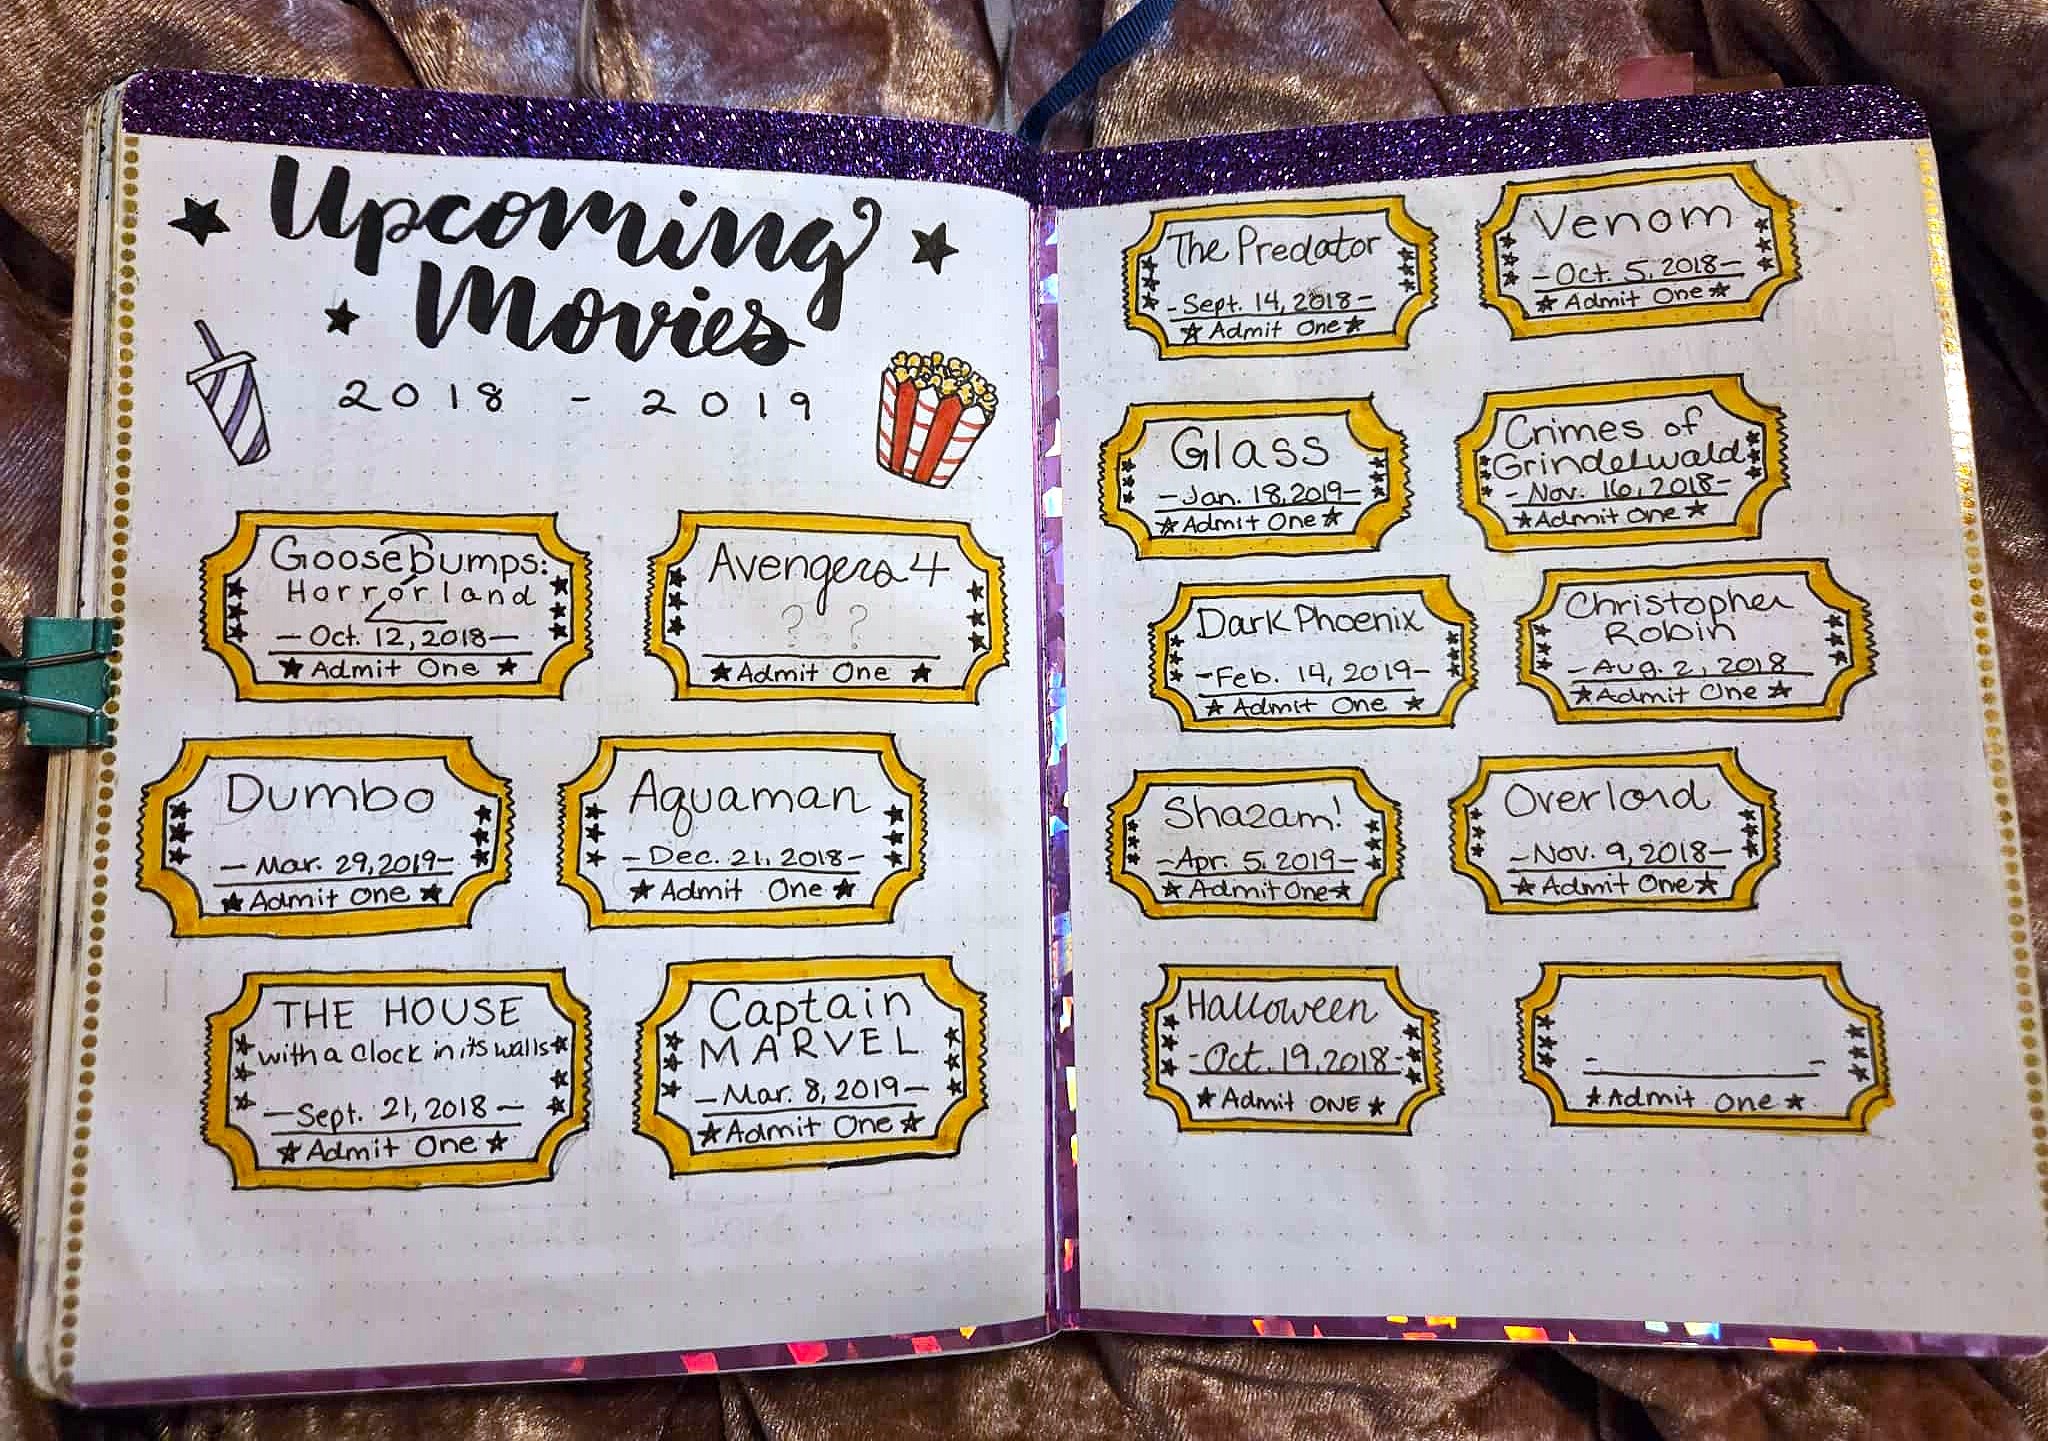 Upcoming
Movies
2018 - 2019
GooseBumps:
Horrorland
- Oct. 12, 2018 -
Admit One
Avengers 4
? ?
Admit One
Dumbo
- Mar. 29, 2019 -
Admit One
Aquaman
- Dec. 21, 2018 -
Admit One
THE HOUSE
with a Clock in its walls
- Sept. 21, 2018 -
Admit One
Captain
MARVEL
- Mar. 8, 2019 -
Admit One
The Predator
- Sept. 14, 2018 -
Admit One
Venom
- Oct. 5, 2018 -
Admit One
Glass
- Jan. 18, 2019 -
Admit One
Crimes of
Grindelwald
- Nov. 16, 2018 -
Admit One
Dark Phoenix
- Feb. 14, 2019 -
Admit One
Christopher
Robin
- Aug. 2, 2018
Admit One
Shazam!
- Apr. 5, 2019 -
Admit One
Overlord
- Nov. 9, 2018 -
Admit One
Halloween
- Oct. 19, 2018 -
Admit ONE
- -
Admit One